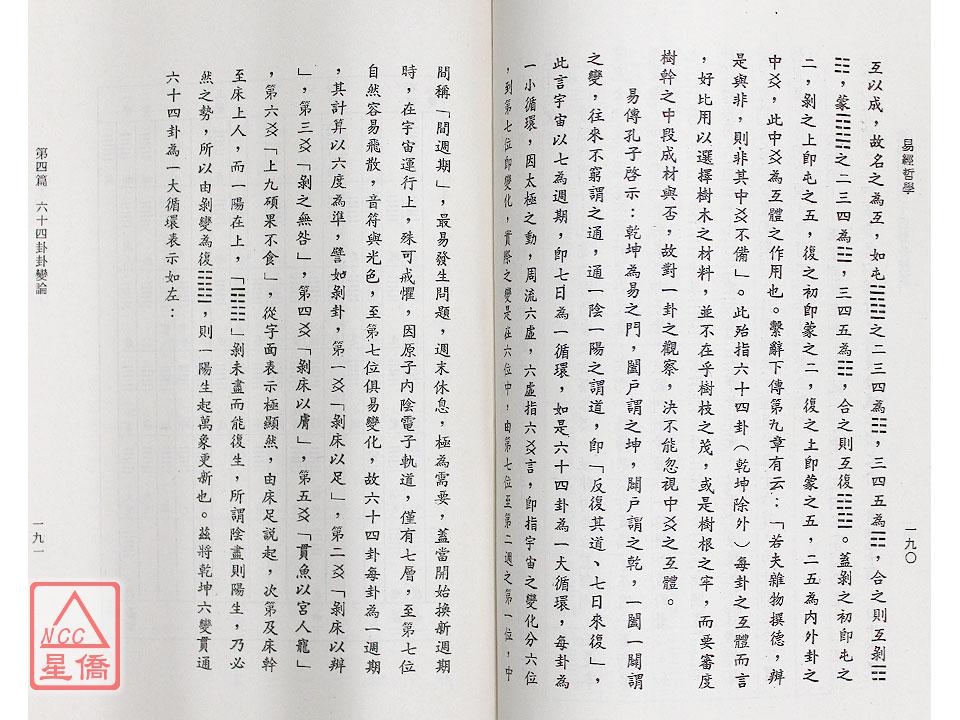 易經哲學
一九〇
互以成，故名之為互，如屯䷂之二三四為☷，三四五為☶，合之則互剝䷖
䷖，蒙䷃之二三四為☳，三四五為☷，合之則互復䷗。蓋剝之初即屯之
二，剝之上即屯之五，復之初即蒙之二，復之上即蒙之五，二五為內外卦之
中爻，此中爻為互體之作用也。繫辭下傳第九章有云：「若夫雜物撰德，辨
是與非，則非其中爻不備」。此殆指六十四卦（乾坤除外）每卦之互體而言
，好比用以選擇樹木之材料，並不在乎樹枝之茂，或是樹根之牢，而要審度
樹幹之中段成材與否，故對一卦之觀察，決不能忽視中爻之互體。
易傳孔子啓示：乾坤為易之門，闔戶謂之坤，闢戶謂之乾，一闔一闢謂
之變，往來不窮謂之通，通一陰一陽之謂道，即「反復其道、七日來復」，
此言宇宙以七為週期，即七日為一循環，如是六十四卦為一大循環，每卦為
一小循環，因太極之動，周流六虛，六虛指六爻言，即指宇宙之變化分六位
，到第七位即變化，實際之變是在六位中，由第七位至第二週之第一位，中
間稱「間週期」，最易發生問題，週末休息，極為需要，蓋當開始換新週期
時，在宇宙運行上，殊可戒懼，因原子內陰電子軌道，僅有七層，至第七位
自然容易飛散，音符與光色，至第七位俱易變化，故六十四卦每卦為一週期
，其計算以六度為準，譬如剝卦，第一爻「剝床以足」，第二爻「剝床以辨
」，第三爻「剝之無咎」，第四爻「剝床以膚」，第五爻「貫魚以宮人寵」
，第六爻「上九碩果不食」，從字面表示極顯然，由床足說起，次第及床幹
至床上人，而一陽在上，「䷖」剝未盡而能復生，所謂陰盡則陽生，乃必
然之勢，所以由剝變為復䷗，則一陽生起萬象更新也。茲將乾坤六變貫通
六十四卦為一大循環表示如左：
第四篇 六十四卦卦變論
一九一
NCC
星僑